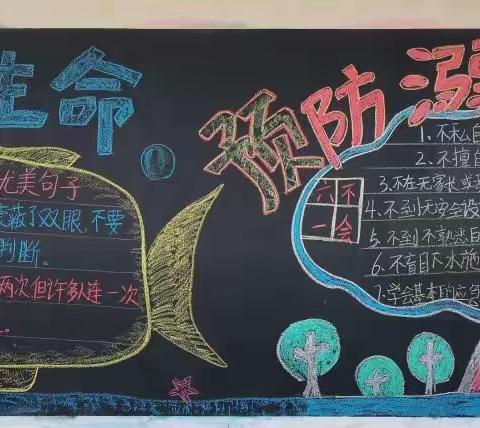 生命
预防溺
优美句子
蔽了双眼,不要
判断。
两次但许多人连一次
六不
一会
1、不私自
2、不擅自
3、不在无家长或
4、不到无安全设
5、不到不熟悉
6、不盲目下水施
7、学会基本的应急